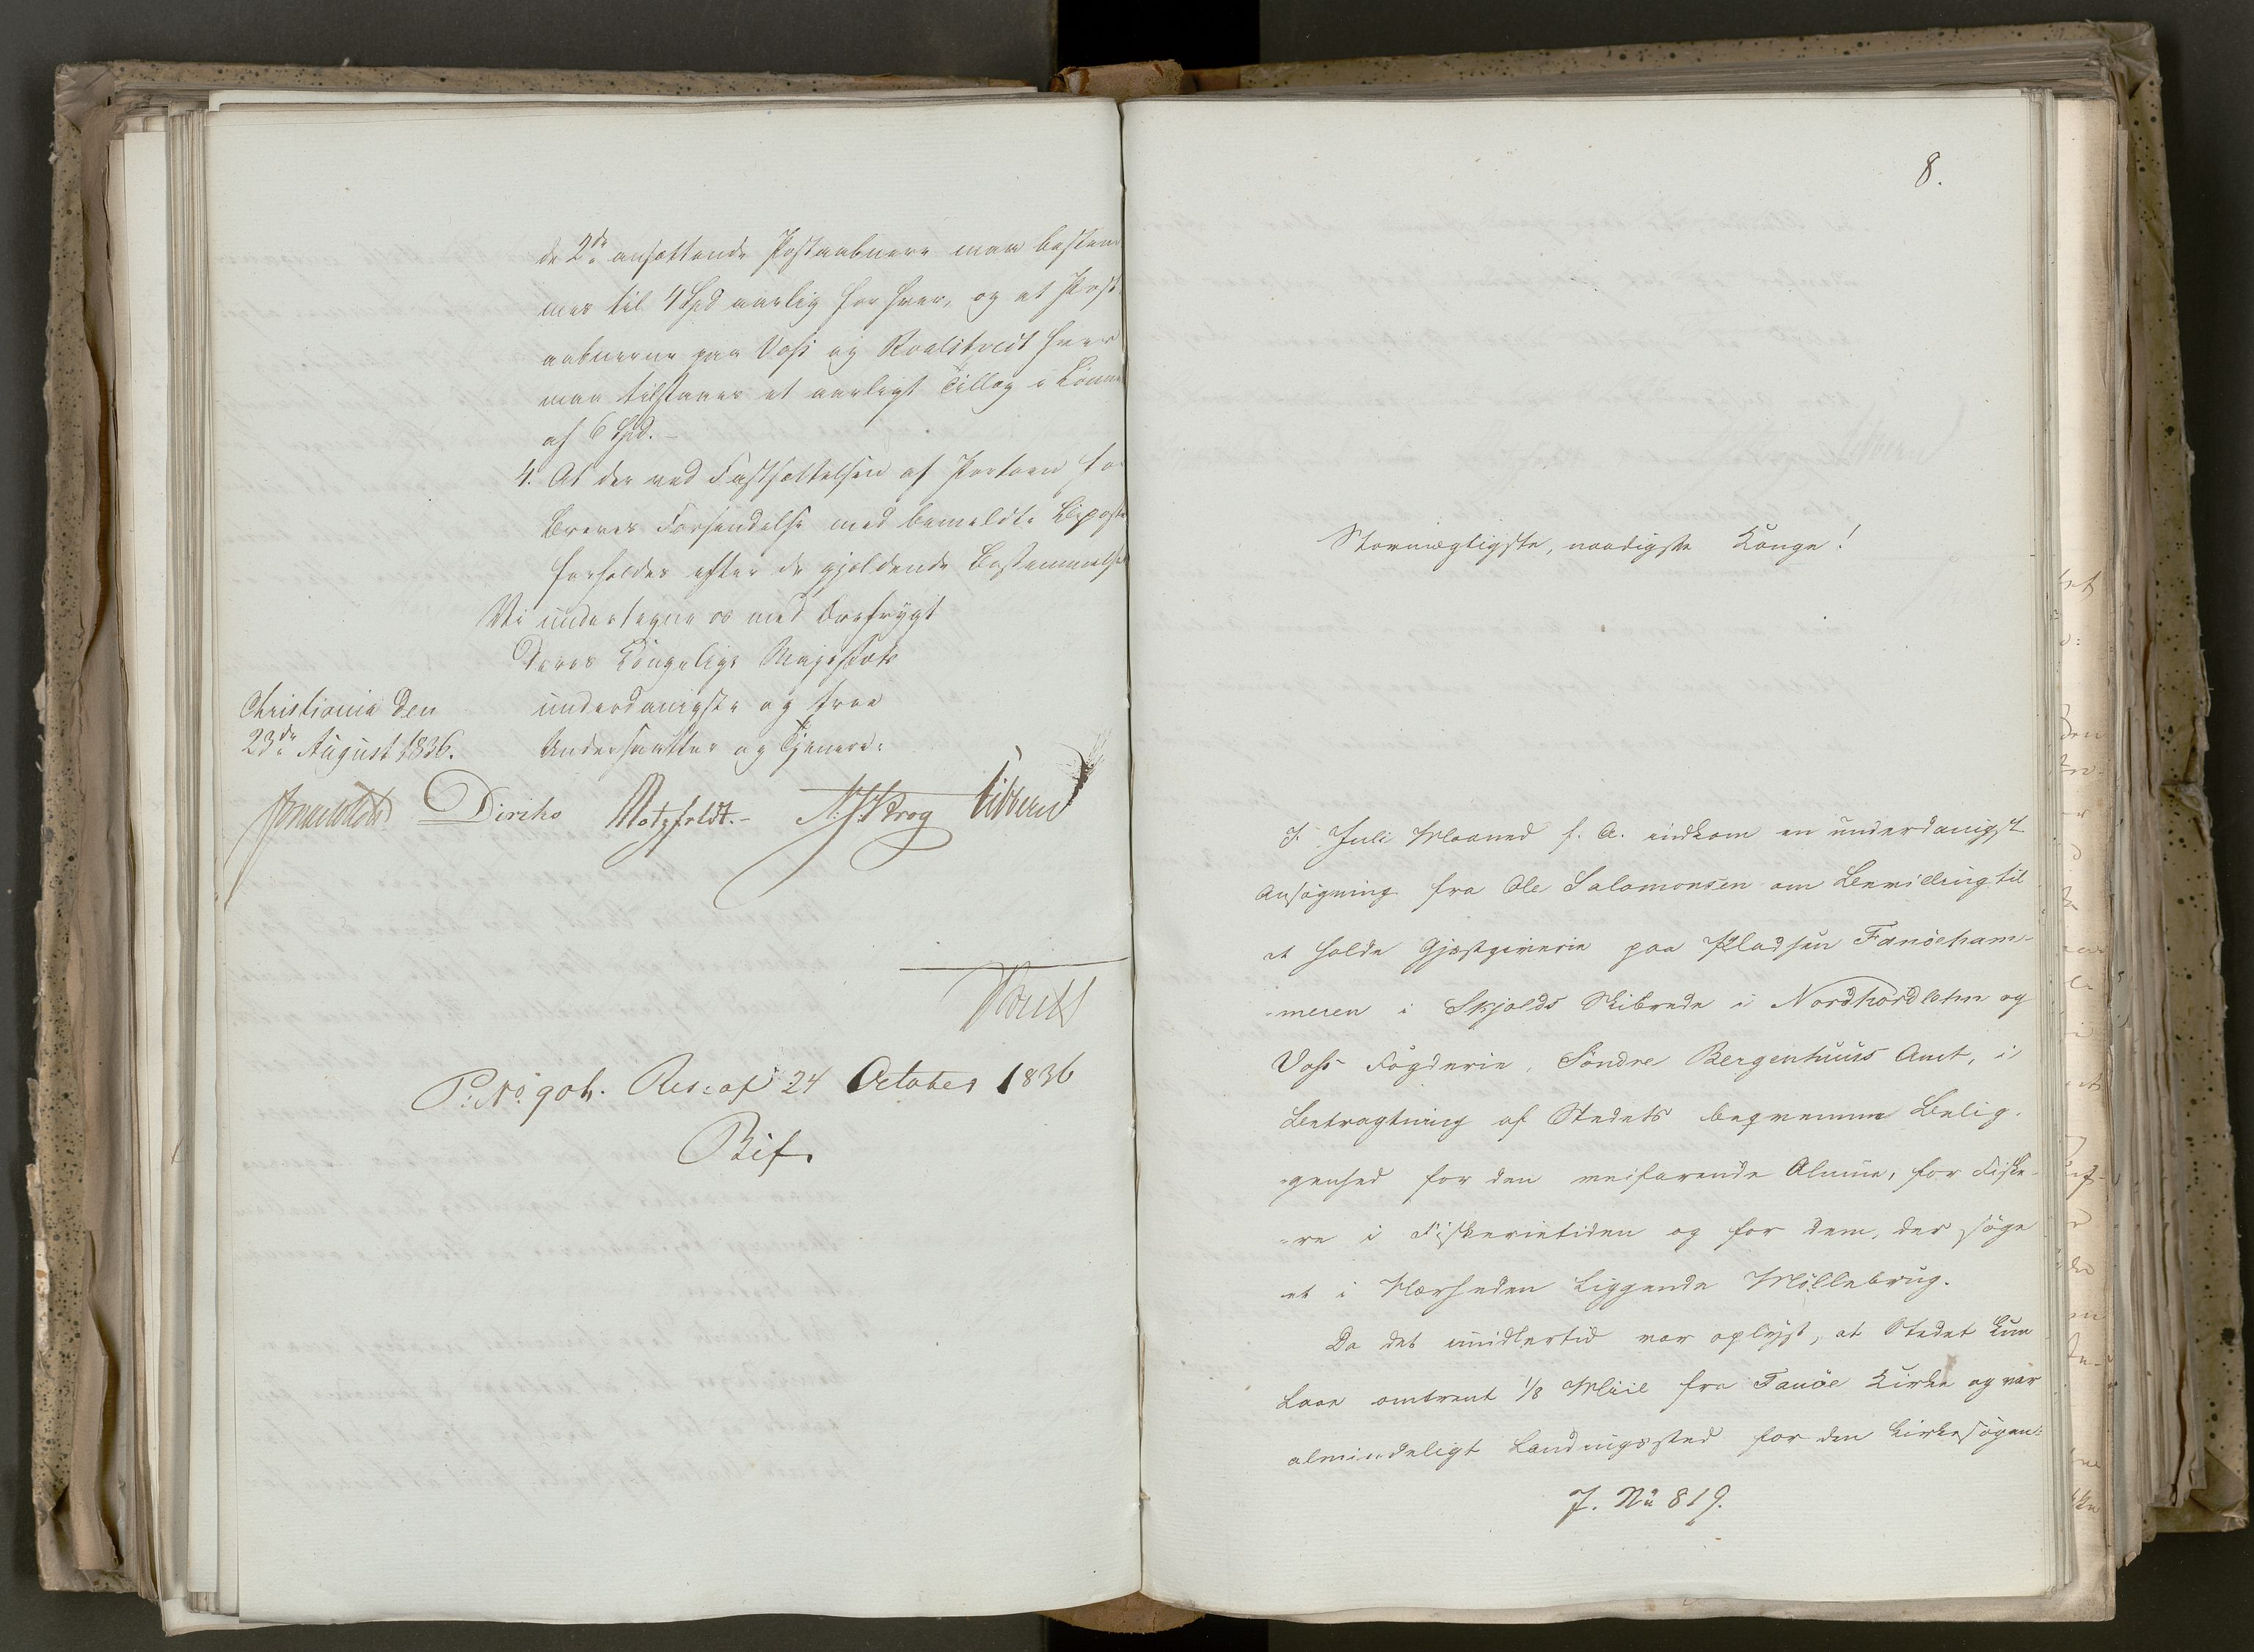 de 2de ansættende Postaabnere maa bestem
mes til 4 Spd aarlig for hver, og at Post
aabnerne paa Voss og Roalstvedt hver
maa tilstaaes et aarligt Tillæg i Lønnen
af 6 Spd. -
4. At der ved Fastsættelsen af Portoen for
Breves Forsendelse med bemeldte Biposter
forholdes efter de gjældende Bestemmelser
Vi undertegne os med Ærefrygt
Deres Kongelige Majestæts
Christiania den
23de August 1836.
underdanigste og troe
Undersaatter og Tjenere:
Diriks Motzfeldt. - Krog Sibbern
P: No. 904. Res: af 24 October 1836
Bif.
8.
Stormægtigste, naadigste Konge!
I Juli Maaned f. A. indkom en underdanigst
Ansøgning fra Ole Salamonsen om Bevilling til
at holde Gjæstgiverie paa Pladsen Fanöeham-
-meren i Skjolds Skibrede i Nordhordlehn og
Voss Fogderie, Söndre Bergenhuus Amt, i
Betragtning af Stedets beqvemme Belig-
-genhed for den veifarende Almue, for Fiske-
-re i Fiskerietiden og for dem, der søge
et i Nærheden liggende Møllebrug.
Da det imidlertid var oplyst, at Stedet kun
laae omtrent 1/8 Miil fra Fanöe Kirke og var
almindeligt Landingssted for den Kirkesøgen-
J. No 819.